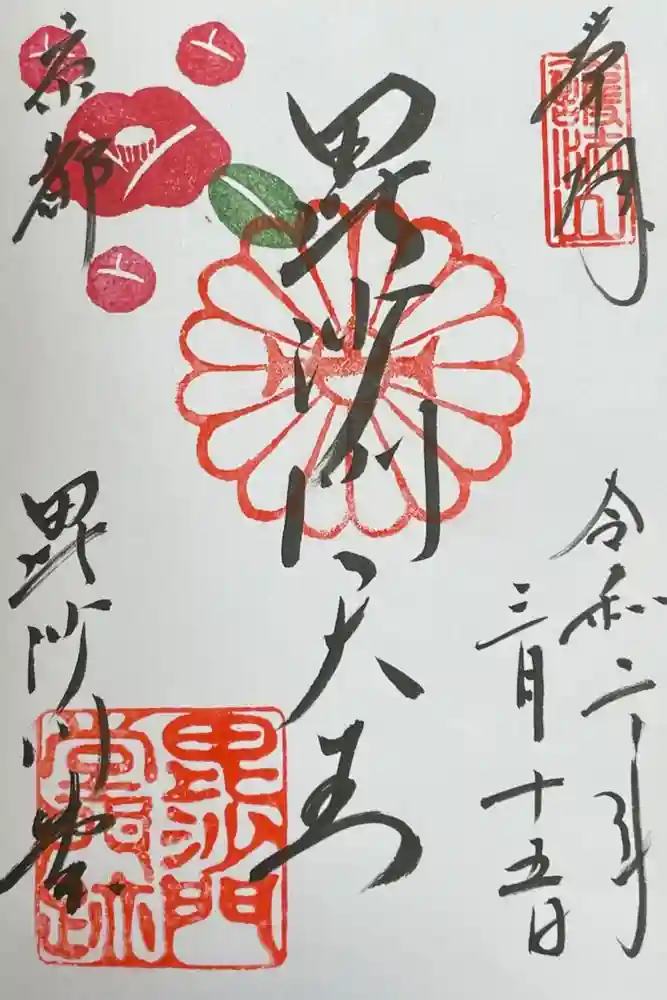 奉拝
護法山
令和二年
三月十五日
毘沙門天王
京都
毘沙門堂
毘沙門
堂門跡